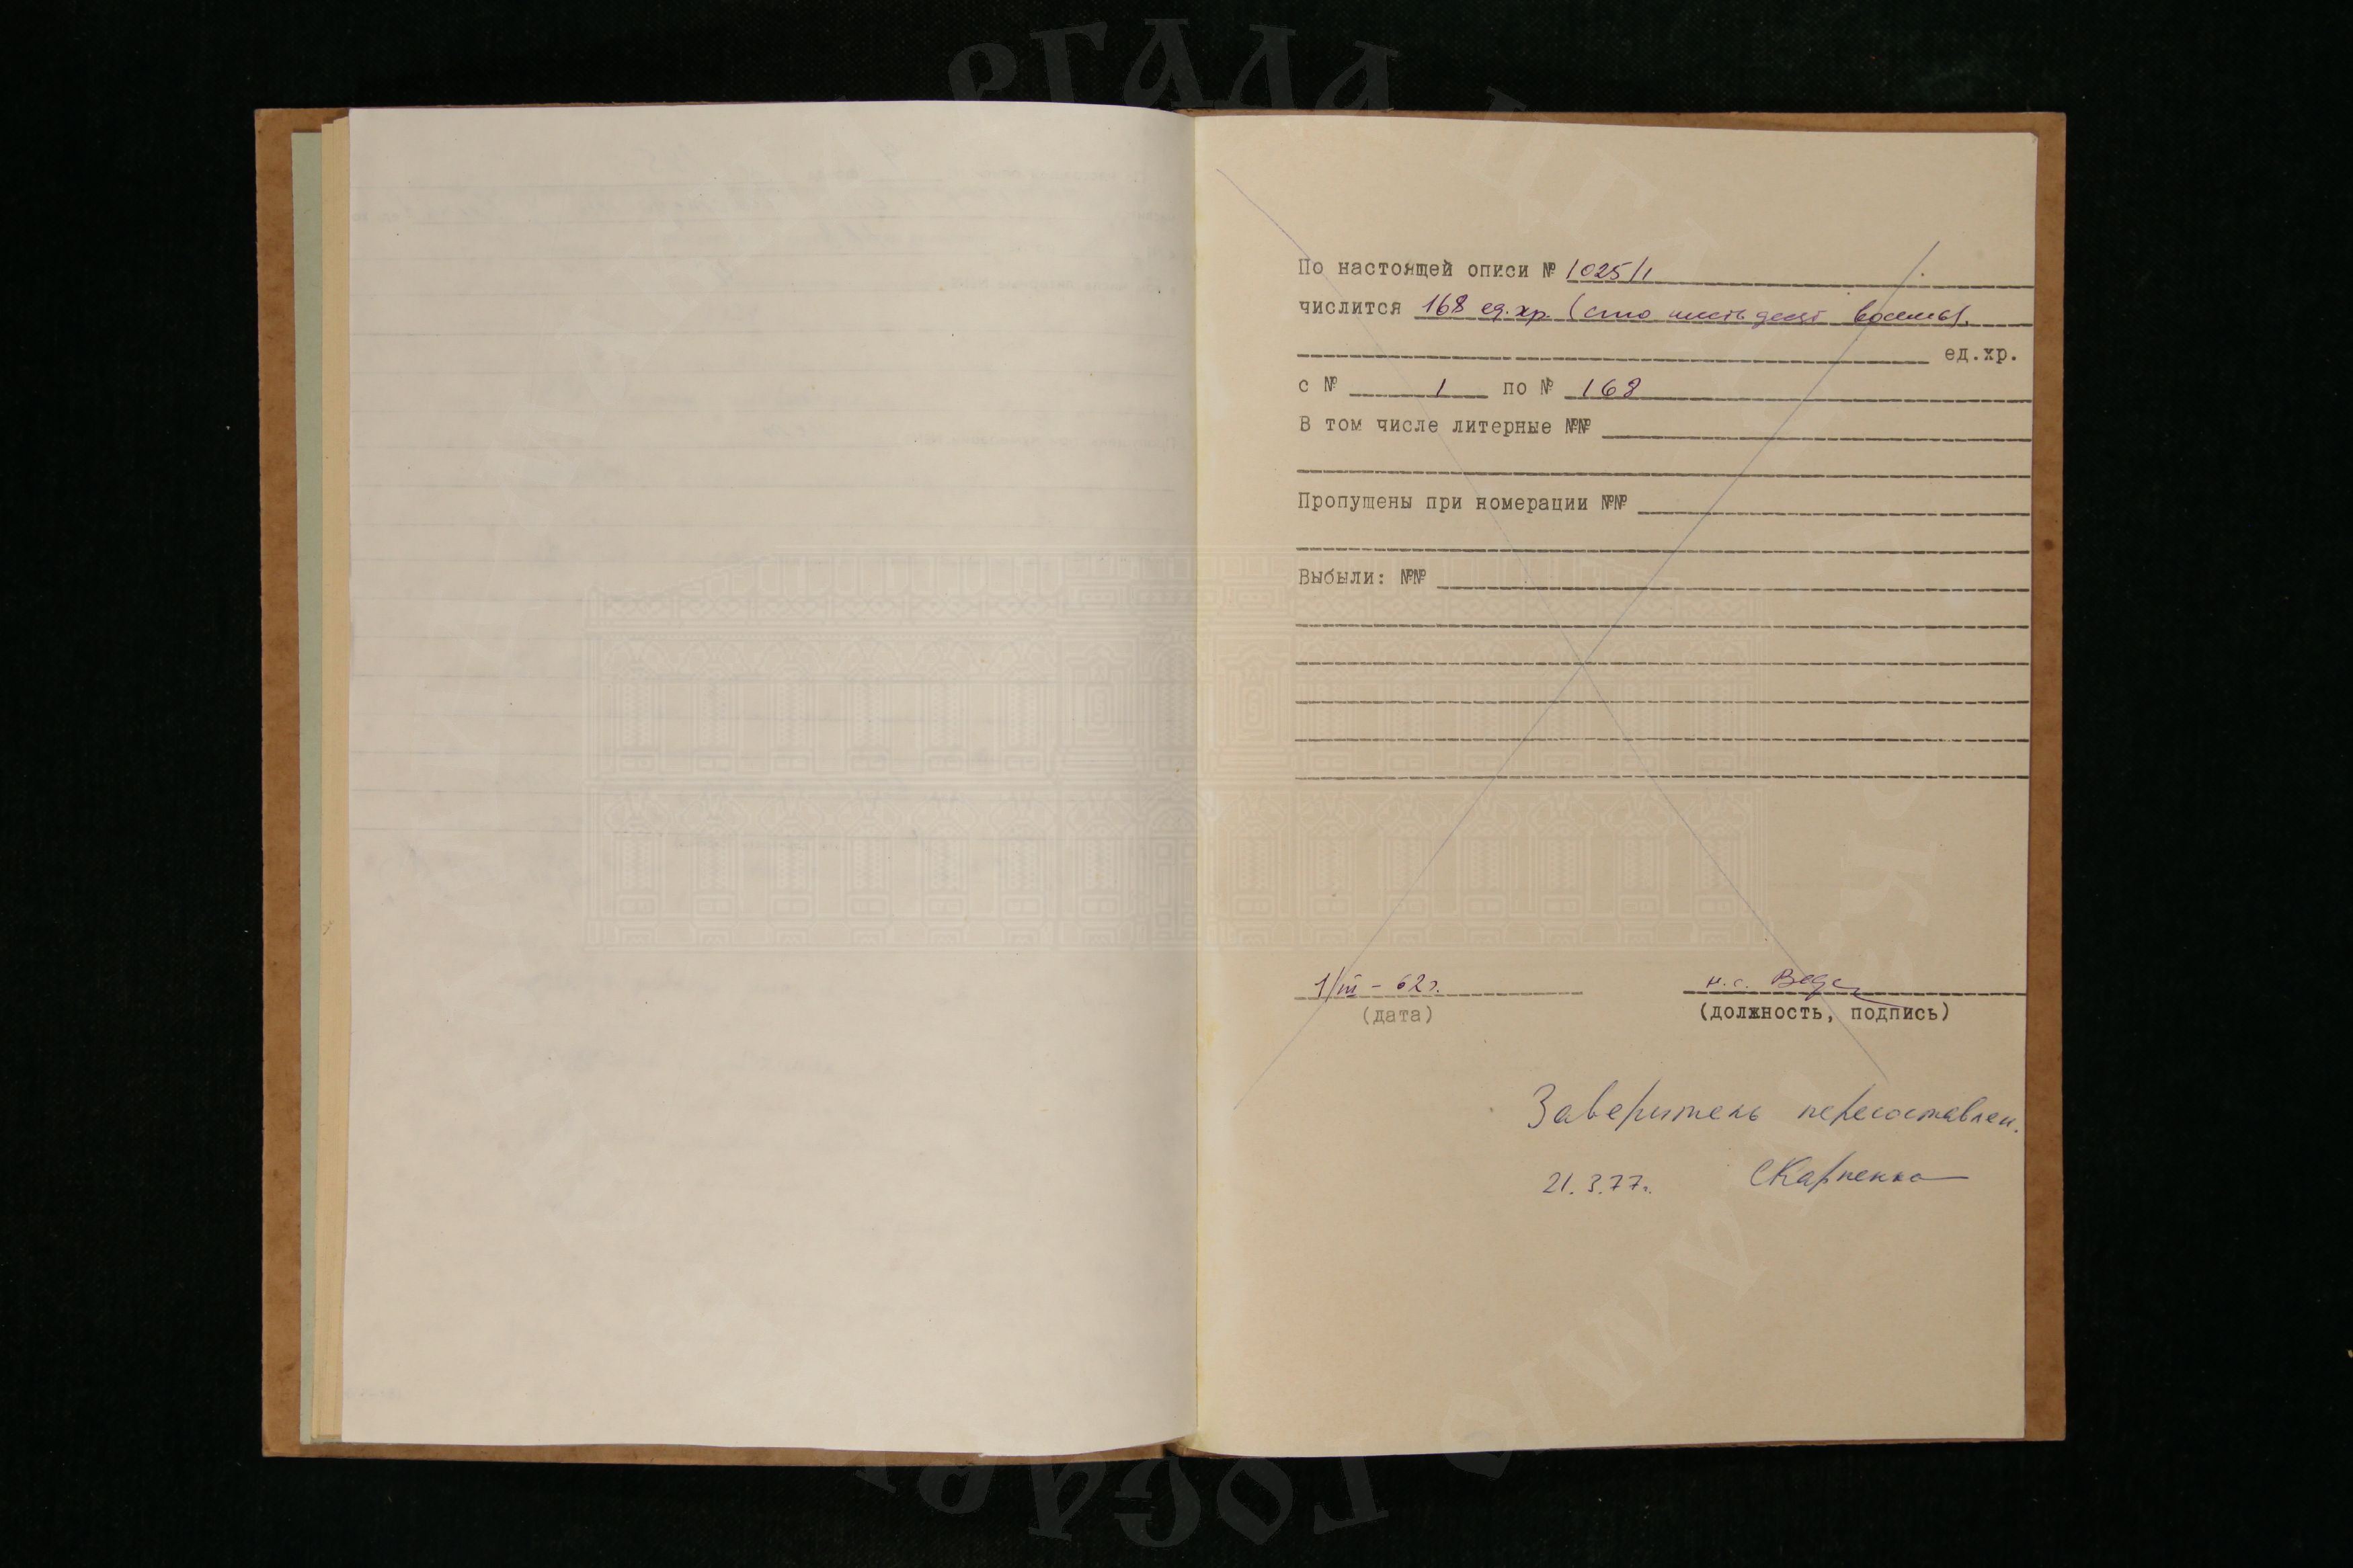 По настоящей описи № 1025/1
числится 168 ед.хр. (сто шестьдесят восемь).
ед.хр.
с № 1 по № 168
В том числе литерные №№
Пропущены при номерации №№
Выбыли: №№
1/III - 62 г. н.с.
(дата) (должность, подпись)
Заверитель пересоставлен.
21.3.77г. СКарпенко